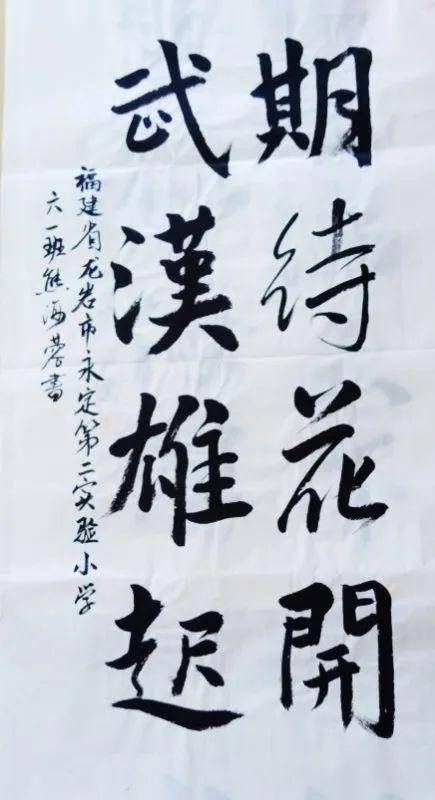 期待花開
武漢雄起
福建省龙岩市永定第二实验小学
六一班熊海蓉書